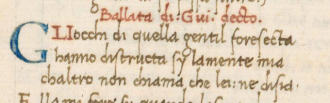 Ballata di Gui decto.
GLIocchi di quella gentil foresecta
hanno distructa sy lamente mia
chaltro non chiama che lei: ne disia.